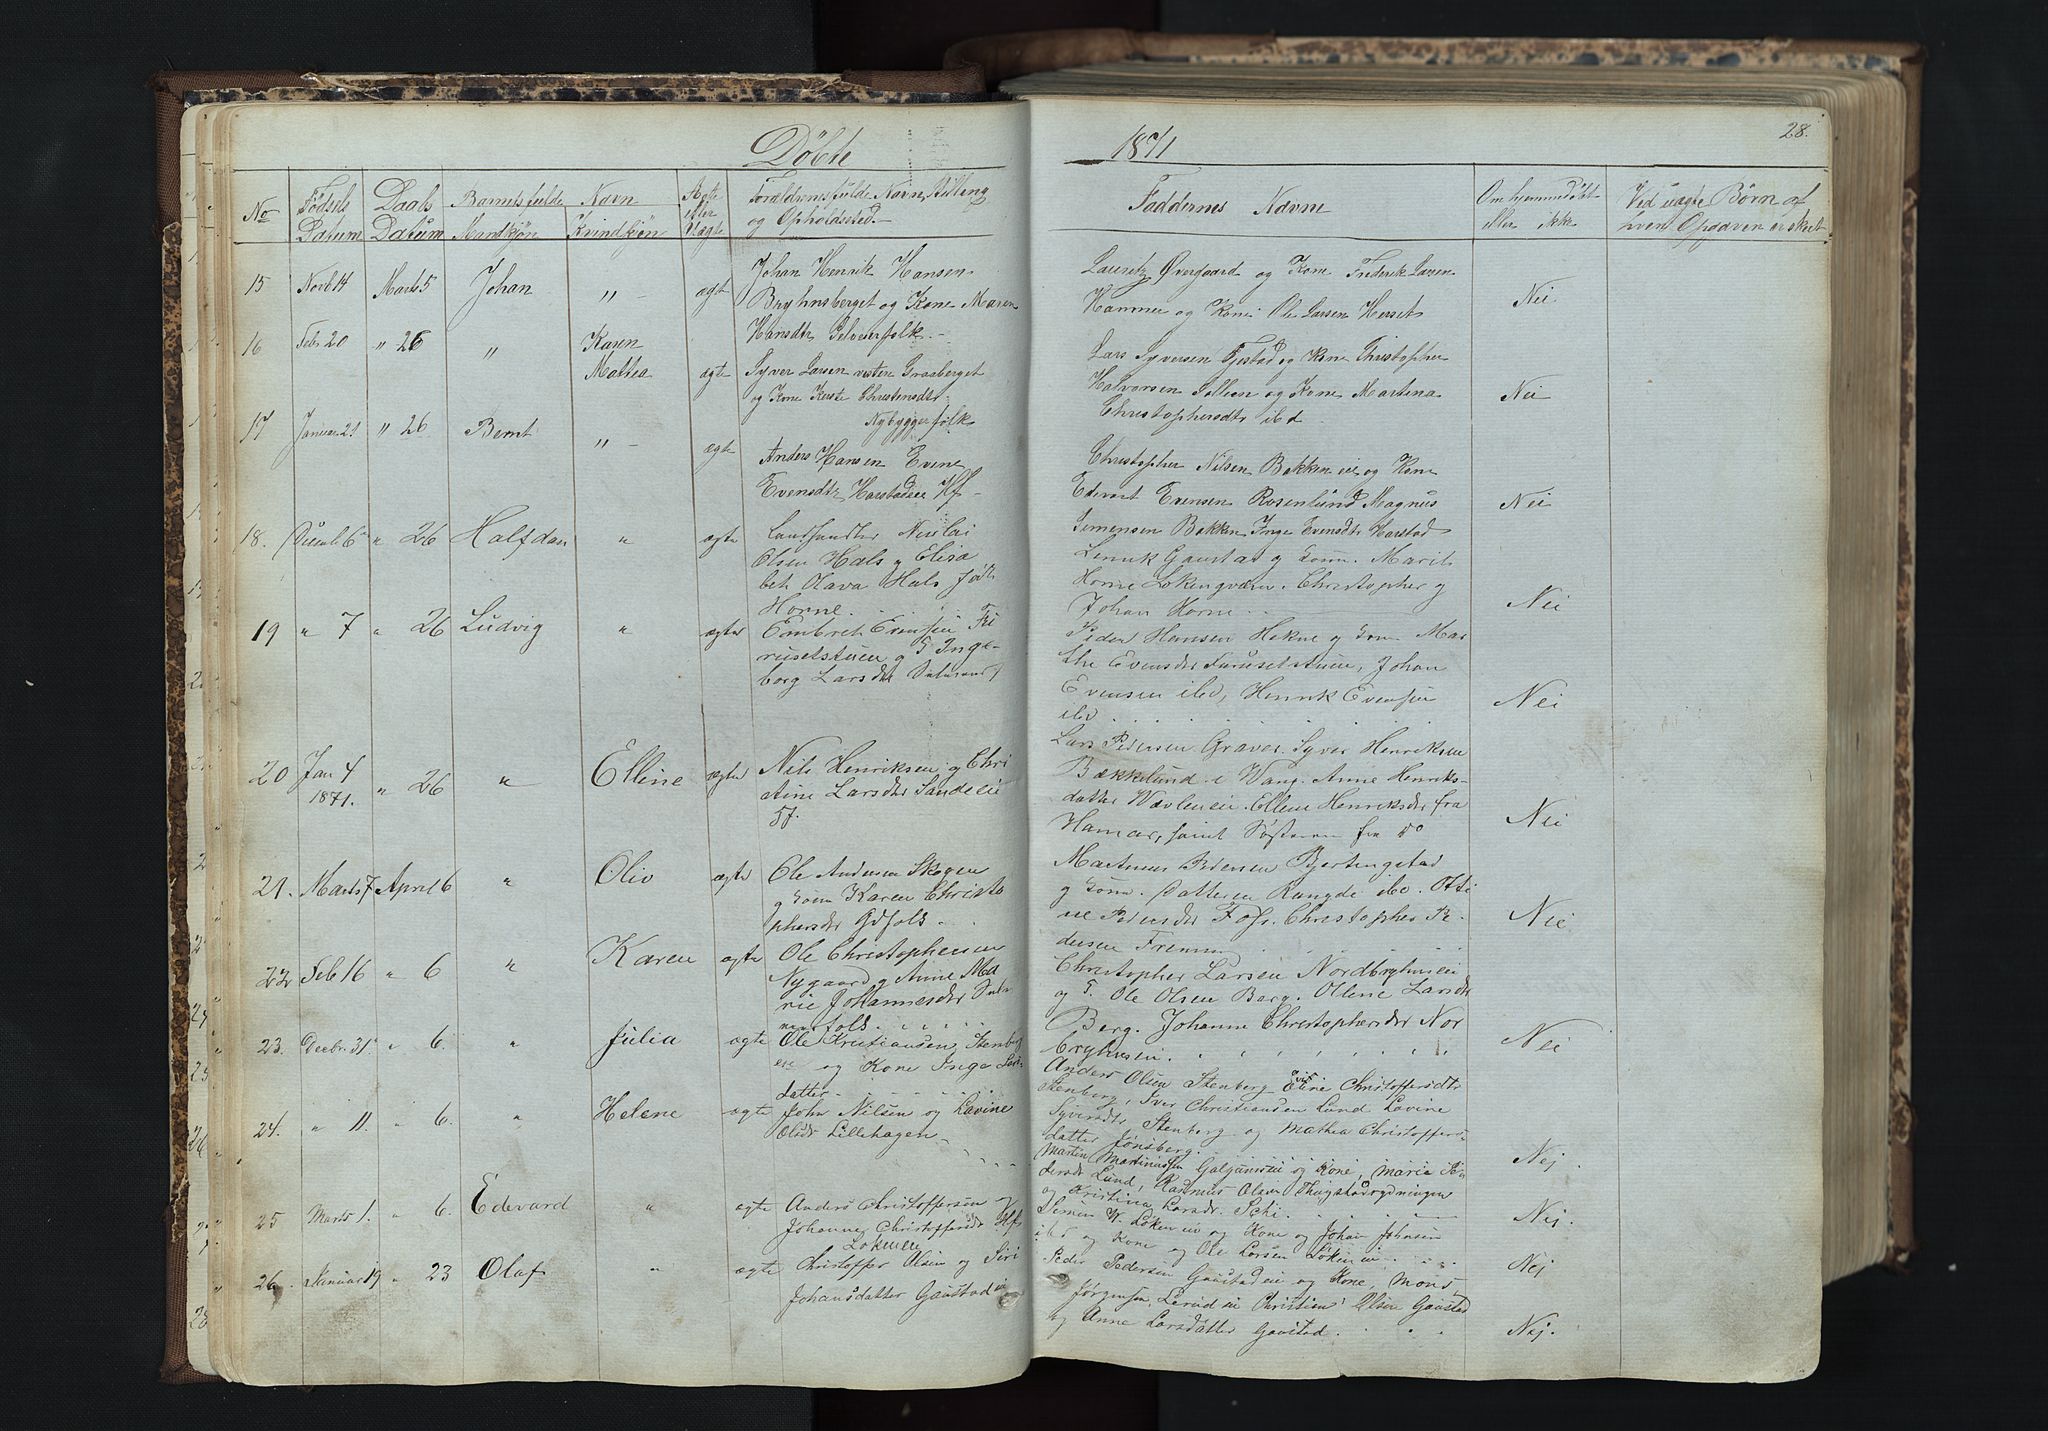 Döbte
1871
28.
No
Födsels Datum
Daabs Datum
Barnets fulde Navn
Mandkjön
Kvindkjön
Ægte eller Uægte
Forældrenes fulde Navn, Stilling
og Opholdssted
Faddernes Navne
Om hjemmedöbt
eller ikke
Ved uægte Börn af
hvem Opgaven er skeet
15 Novb 14 Marts 5 Johan " ægte
Johan Henrik Hansen
Bryhnsberget og Kone Maren
Hansdtr Selveierfolk.
Lauritz Övergaard og Kone Frederik Larsen
Hammer og Kone Ole Larsen Herset
Nei.
16 Feb 20 " 26 " Karen
Mattea ægte
Syver Larsen vestre Graaberget
og Kone Kerste Christensdtr
Nybyggerfolk
Lars Syversen Fjestad og Kone Christopher
Halvorsen Sollien og Kone Martina
Christophersdtr ibd.
Nei
17 Januar 21 " 26 Bernt " ægte
Anders Hansen Evene
Evensdtr Harstadeie Hf
Christopher Nilsen Bakken eie og Kone
Edvart Evensen Rosenlund Magnus
Simensen Bakken Inge Evensdtr Harstad
Nei
18. Decemb 6 " 26 Halfdan " ægte
Landhandler Nicolai
Olsen Hals og Elisa
beth Olava Hals, född
Horne.
Gaustad og Marit
Horne Christopher og
Johan Horne.
Nei
19 " 7 " 26 Ludvig " ægte
Embret Evensen Fu
rusetstuen og Inge
borg Larsdtr
Peder Hansen Hekne og Mar
the Evensdtr Furusetstuen, Johan
Evensen ibd, Henrik Evensen
ibd.
Nei
20 Jan 4
1871. " 26 " Ellene ægte
Nils Henriksen og Chri
stine Larsdtr Sandeie
Lars Pedersen Graver. Syver Henriksen
Bækkelund i Vang. Anne Henriks-
datter Ellene Henriksdtr fra
Hamar, samt Söstren fra do
Nei
21. Marts 7 April 6 " Oliv ægte
Ole Andersen Skogen
og Karen Christo
phersdtr Gdfolk.
Martinus Pedersen Bjertingstad
og ibd. Otti
ne Pedersdtr Foss. Christopher Pe
dersen
Nei
22 Feb 16 " 6 " Karen ægte
Ole Christophersen
Nygaard og Anne Ma
rie Johannesdtr
folk.
Christopher Larsen Nordbryhnseie
og Ole Olsen Berg. Ollene Larsdtr
Berg. Johanne Christophersdtr Nor
bryhnseie.
Nei
23. Decbr 31 " 6. " Julia ægte
Ole Kristiansen Stenberg
eie og Kone Inge
datter
Anders Olsen Stenberg Eline Christoffersdtr
Stenberg, Iver Christiansen Lund Lavine
Syversdtr Stenberg og Mathea Christoffers-
datter Jönsberg.
Nej.
24. " 11. " 6. " Helene ægte
John Nilsen og Lavine
Olsdtr Lillehagen
Martin Martinussen og Kone, Marie
Lund, Rasmus Olsen Thingstadrydningen
og Kristina Larsdtr.
Nej.
25 Marts 1. " 6. Edevard " ægte
Anders Christoffersen og
Johanne Christoffersdtr Hf
Lökeneie
Simen Lökeneie og Kone og Johan Johnsen
ibd og Kone og Ole Larsen Lökeneie
Nej
26 Januar 19 " 23 Olaf " ægte
Christoffer Olsen og Siri
Johansdatter Gaustadeie
Peder Pedersen Gaustadeie og Kone, Mons
Jörgensen, Christian Olsen Gaustad
og Anne Larsdatter Gaustad.
Nej.